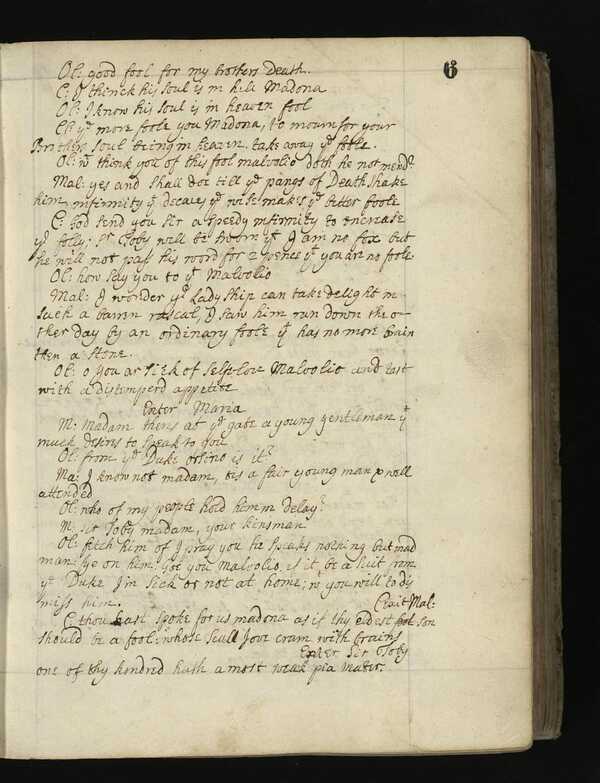 6
Ol: good fool for my brothers Death.
C: I thinck his soul is in hell Madona
Ol: I know his soul is in heaven fool
Cl: yᵉ more foole you Madona, to mourn for your
Brothers soul being in heaven. take away yᵉ foole.
Ol: wᵗ think you of this fool malvolio doth he not mend?
Mal: yes and shall doe till yᵉ pangs of Death shake
him, infirmity yᵗ decaies yᵉ wise makes yᵉ better foole
C: God send you Sir a speedy infirmity to encrease
yʳ folly; Sʳ Toby will be sworn yᵗ I am no fox but
he will not pass his word for 2 pence yᵗ you are no foole
Ol: how say you to yᵗ Malvolio
Mal: I wonder yʳ Ladyship can take delight in
such a barren rascal, I saw him run down the o-
ther day by an ordinary foole yᵗ has no more brain
then a stone.
Ol: o you ar sick of self-love Malvolio and tast
with a distemperd appetite
Enter Maria
M: Madam theirs at yᵉ gate a young gentleman yᵗ
much desires to speak to you
Ol: from yᵉ Duke orsino is it?
Ma: I know not madam, tis a fair young man & well
attended
Ol: who of my people hold him in delay?
M: sir Toby madam, your kinsman
Ol: fetch him of I pray you he speaks nothing but mad
man: fye on him. goe you Malvolio, if it be a suit from
yᵉ Duke I'm sick or not at home; wᵗ you will to dis
miss him. Exit Mal:
C: thou hast spoke for us madona as if thy eldest son
should be a fool: whose scull Jove cram with brains
Enter Sir Toby
one of thy kindred hath a most weak pia mater.